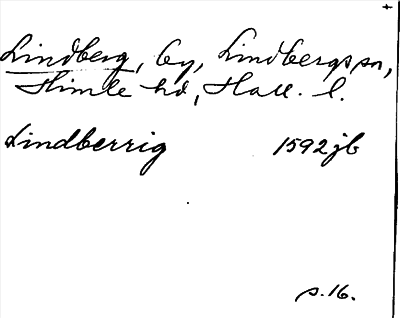 Lindberg, by, Lindbergs sn,
Himle hd, Hall. l.
Lindberrig 1592 jb
s. 16.